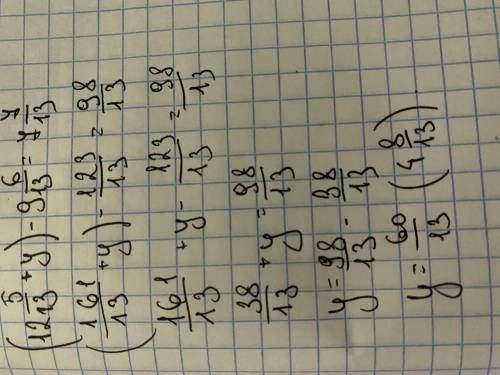 (12 5/13 + y) - 9 6/13 = 7 7/13
(161/13 + y) - 123/13 = 98/13
161/13 + y - 123/13 = 98/13
38/13 + y = 98/13
y = 98/13 - 38/13
y = 60/13 (4 8/13)